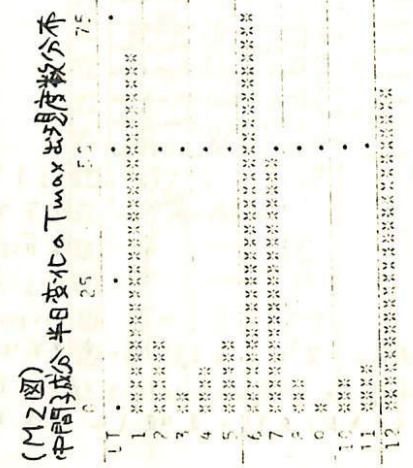 (M2図)
中間子成分 半日変化の Tmax 出現度数分布
0 25 50 75
LT
1
2
3
4
5
6
7
8
9
10
11
12